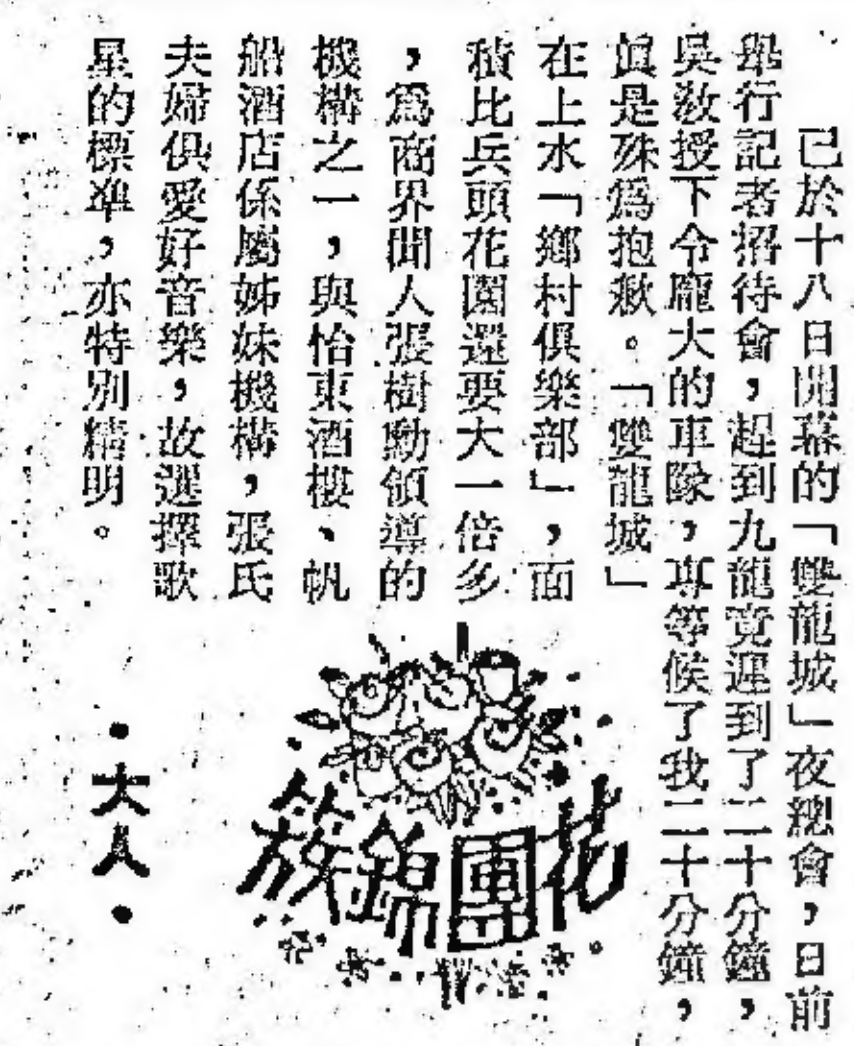 已於十八日開幕的「雙龍城」夜總會，日前
舉行記者招待會，趕到九龍竟遲到了二十分鐘，
吳敎授下令龐大的車隊，專等候了我二十分鐘，
眞是殊爲抱歉。「雙龍城」
在上水「鄉村俱樂部」，面
積比兵頭花園還要大一倍多
，爲商界聞人張樹勳領導的
機構之一，與怡東酒樓、帆
船酒店係屬姊妹機構，張氏
夫婦俱愛好音樂，故選擇歌
星的標準，亦特別精明。
花團錦簇
•大人•